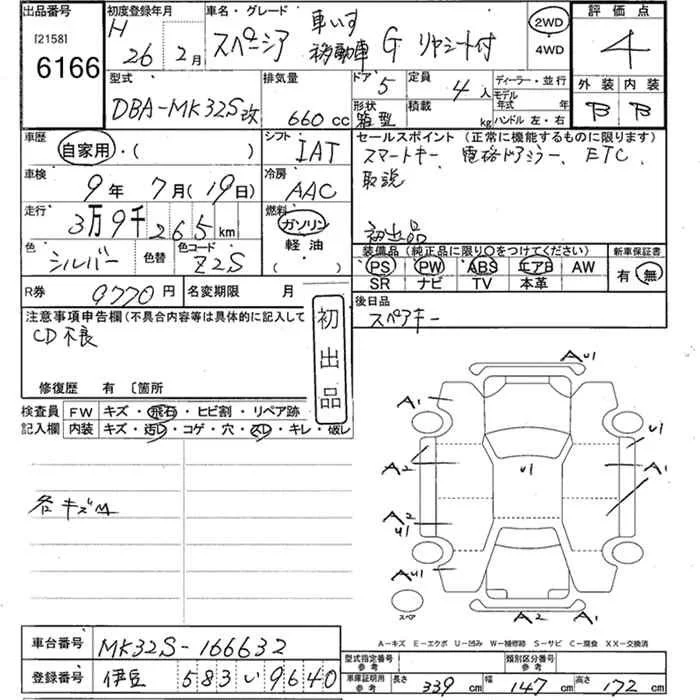 出品番号
[2158]
6166
初度登録年月
H 26年 2月
車名・グレード
スペーシア 車いす移動車 G リヤシート付
2WD
4WD
評価点
4
外装 内装
B B
型式
DBA-MK32S改
排気量
660 cc
ドア 5
形状 箱型
定員 4人
積載 kg
ディーラー・並行
モデル年式 年
ハンドル 左・右
車歴
自家用・( )
シフト
IAT
車検
9年 7月(19日)
冷房
AAC
走行
3万9千265km
燃料
ガソリン
軽油
( )
色
シルバー
色替
色コード
Z2S
セールスポイント(正常に機能するものに限ります)
スマートキー、電格ドアミラー、ETC、
取説
初出品
装備品(純正品に限り○をつけてください)
PS PW ABS エアB AW
SR ナビ TV 本革
新車保証書
有 無
R券 9770円
名変期限 月
後日品
スペアキー
注意事項申告欄(不具合内容等は具体的に記入して
CD不良
初出品
修復歴 有 〔箇所
検査員記入欄
FW キズ・飛石・ヒビ割・リペア跡
内装 キズ・汚レ・コゲ・穴・スレ・キレ・破レ
各キズ
AU1
A1
U1
A2
U1
A1
A2
U1
AU1
スペア
A2 A1
A-キズ E-エクボ U-凹み W-補修跡 S-サビ C-腐食 XX-交換済
車台番号
MK32S-166632
登録番号
伊豆 583 い 9640
型式指定番号 参考
類別区分番号 参考
車庫証明用 参考
長さ 339 cm
幅 147 cm
高さ 172 cm